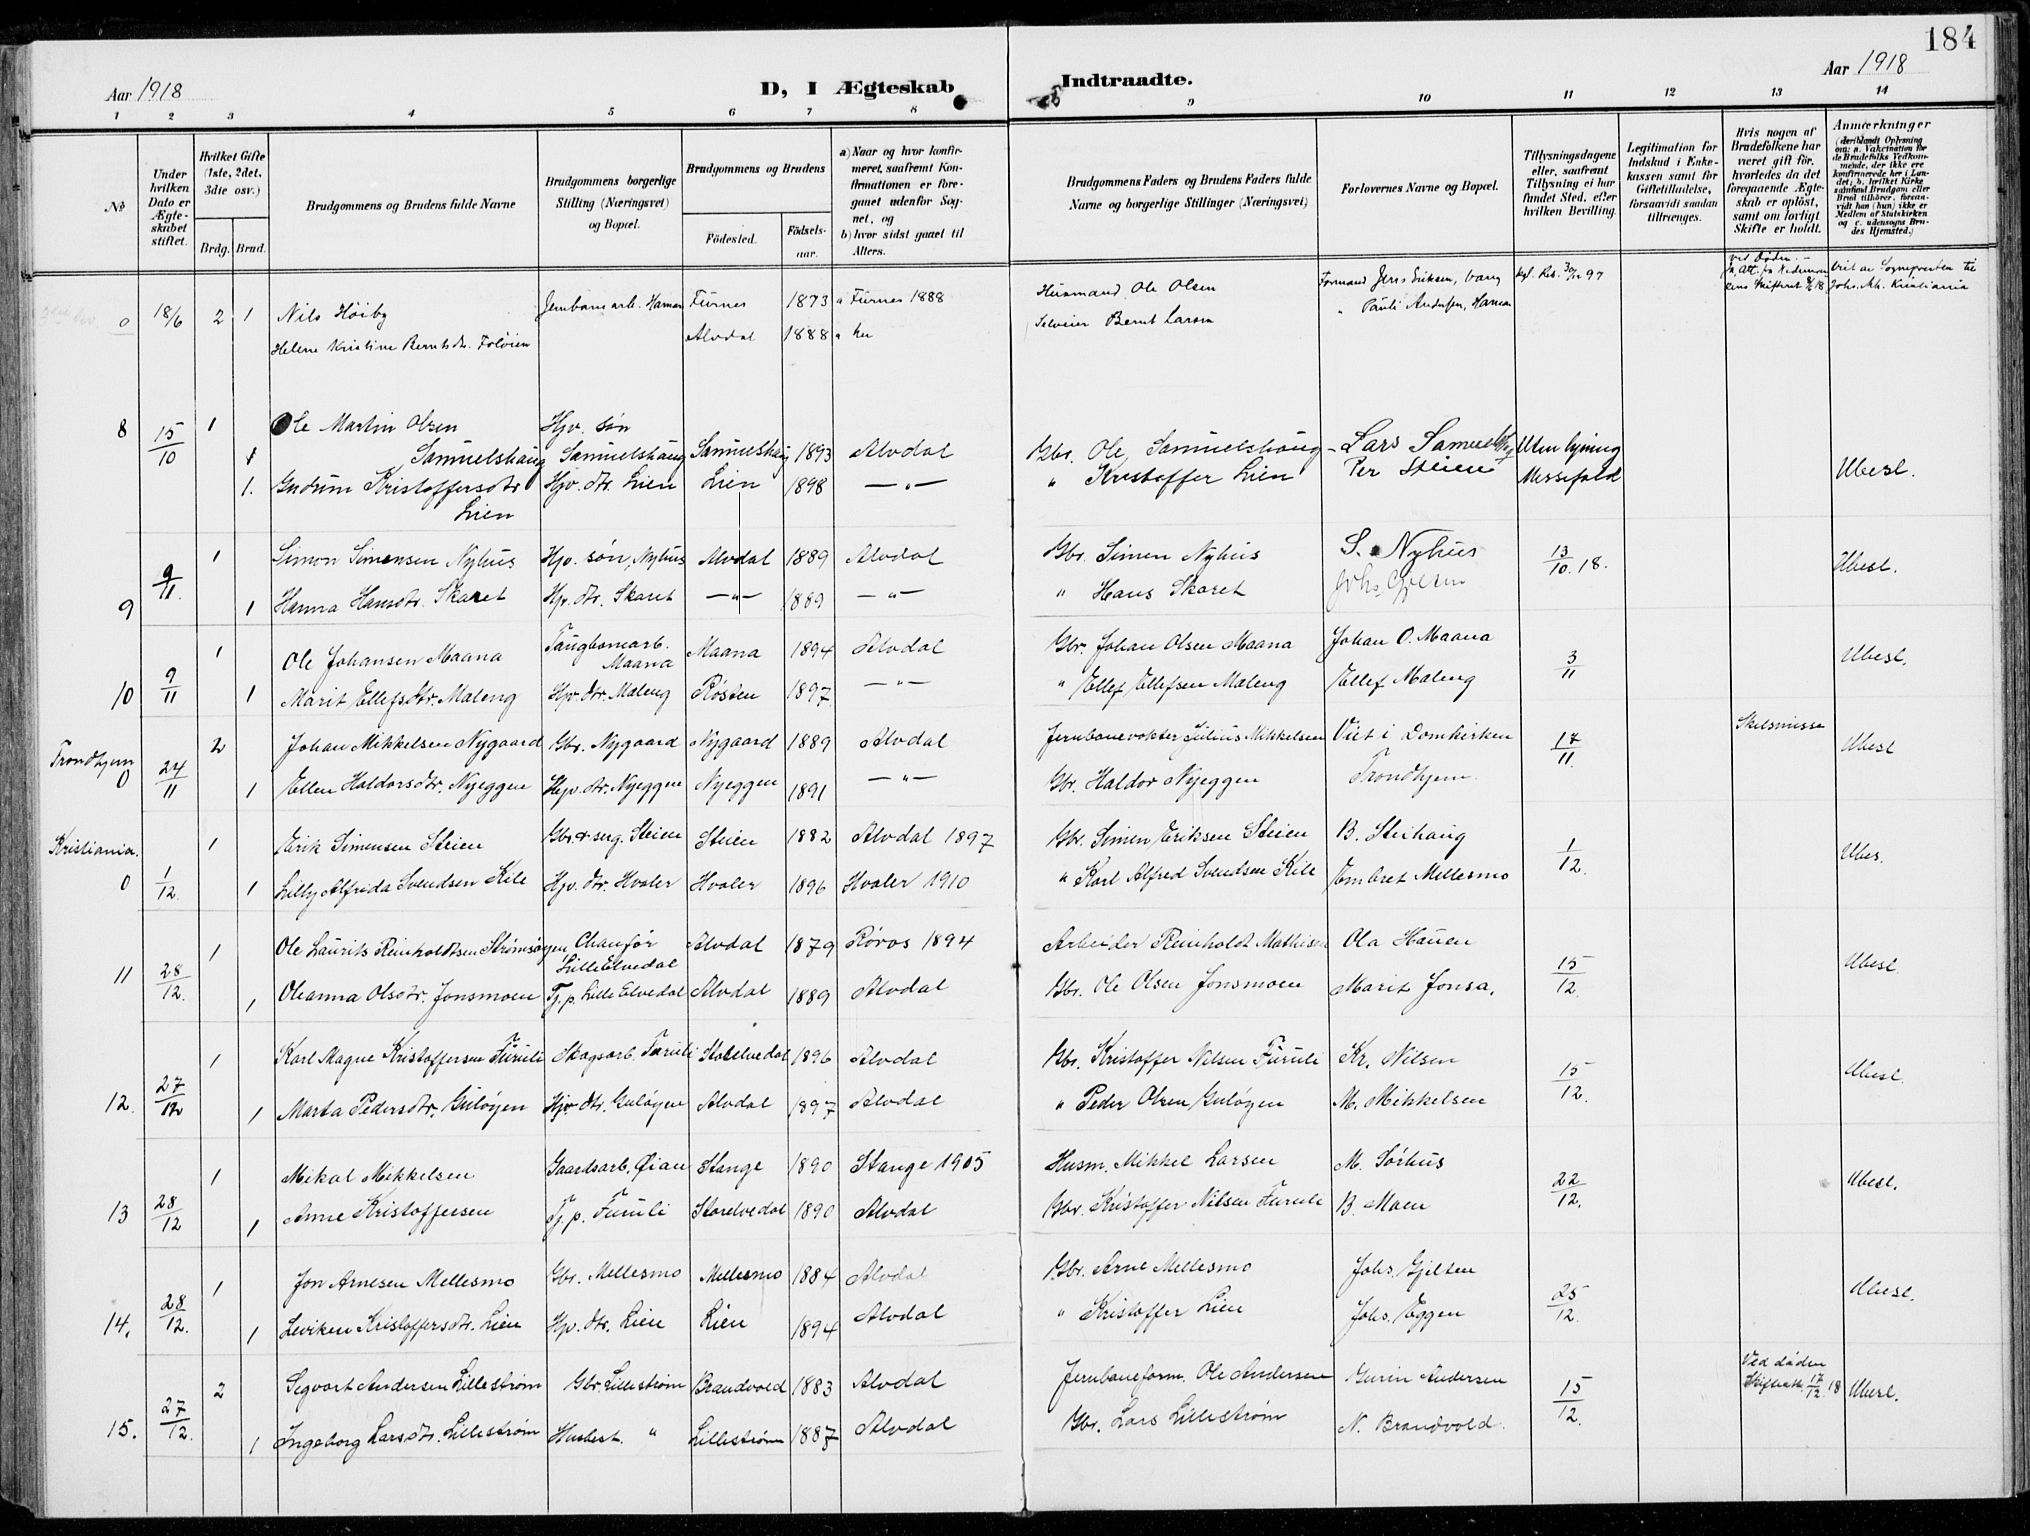 184
Aar 1918
D, I Ægteskab Indtraadte.
Aar 1918
1 2 3 4 5 6 7 8 9 10 11 12 13 14
No
Under hvilken Dato er Ægteskabet stiftet.
Hvilket Gifte (1ste, 2det, 3die osv.)
Brdg. Brud.
Brudgommens og Brudens fulde Navne
Brudgommens borgerlige Stilling (Næringsvei) og Bopæl.
Brudgommens og Brudens
Födested. Födselsaar.
a) Naar og hvor konfirmeret, saafremt Konfirmationen er foregaaet udenfor Sognet, og
b) hvor sidst gaaet til Alters.
Brudgommens Faders og Brudens Faders fulde Navne og borgerlige Stillinger (Næringsvei)
Forlovernes Navne og Bopæl.
Tillysningsdagene eller, saafremt Tillysning ei har fundet Sted, efter hvilken Bevilling.
Legitimation for Indskud i Enkekassen samt for Giftetilladelse, forsaavidt saadan tiltrænges.
Hvis nogen af Brudefolkene har været gift för, hvorledes da det foregaaende Ægteskab er oplöst, samt om lovligt Skifte er holdt.
Anmærkninger (deriblandt Oplysning om: a. Vakcination for de Brudefolks Vedkommende, der ikke ere konfirmerede her i Landet; b. hvilket Kirkesamfund Brudgom eller Brud tilhörer, forsaavidt han (hun) ikke er Medlem af Statskirken og c. udensogns Brudes Hjemsted.)
0 18/6 2 1 Nils Höiby Jernbanearb. Hamar Furnes 1873 a Furnes 1888 Husmand Ole Olsen Formand Jens Eriksen, Vang Kgl. Res. 30/12 97 ved Döden.
Helene Kristine Berntsdtr. Folöien Alvdal 1888 a her Selveier Bernt Larsen " Pauli Andersen, Hamar Viet av Sognepresten til Joh. Kristiania
8 15/10 1 Ole Martin Olsen Samuelshaug Hjv. søn Samuelshaug Samuelshaug 1893 Alvdal Gbr. Ole Samuelshaug Lars Samuelshaug Uten lysning
1. Gudrun Kristoffersdtr Lien Hjv. dtr. Lien Lien 1898 — " — " Kristoffer Lien Per Steien Messefald Ubesl.
9 9/11. 1 Simon Simensen Nyhus Hjv. søn, Nyhus Alvdal 1889 Alvdal Gbr. Simen Nyhus S. Nyhus 13/10. 18. Ubesl.
1 Hanna Hansdtr. Skaret Hjv. dtr. Skaret — " — 1889 — " — " Hans Skaret Johs. Gjelten
10 9/11 1 Ole Johansen Maana Taugbanearb. Maana Maana 1894 Alvdal Gbr. Johan Olsen Maana Johan O. Maana 3/11 Ubesl.
1 Marit Ellefsdtr. Mæleng Hjv. dtr. Mæleng Røsten 1897 — " — " Ellef Ellefsen Mæleng Ellef Mæleng
Trondhjem 0 24/11 2 Johan Mikkelsen Nygaard Gbr. Nygaard Nygaard 1889 Alvdal Jernbanevokter Julius Mikkelsen Viet i Domkirken 17/11. Skilsmisse Ubesl
1 Ellen Haldorsdtr. Nyeggen Hjv. dtr. Nyeggen Nyeggen 1891 — " — Gbr. Haldor Nyeggen Trondhjem.
Kristiania. 0 1/12. 1 Erik Simensen Steien Gbr. & serg. Steien Steien 1882 Alvdal 1897 Gbr. Simen Eriksen Steien B. Steihaug 1/12. Ubes.
1 Lilly Alfrida Svendsen Kile Hjv. dtr. Hvaler Hvaler 1896 Hvaler 1910 " Karl Alfred Svendsen Kile Embret Mellesmo
11 28/12. 1 Ole Laurits Reinholdtsen Strømsøyen Chanfør LilleElvedal Alvdal 1879 Røros 1894 Arbeider Reinholdt Mathisen Ola Hauen 15/12. Ubesl.
1 Oleanna Olsdtr. Jonsmoen Tj. p. Lille Elvedal Alvdal 1889 Alvdal Gbr. Ole Olsen Jonsmoen Marit Jonsa.
12. 27/12 1 Karl Magne Kristoffersen Furuli Skogsarb. Furuli Storelvedal 1896 Alvdal Gbr. Kristoffer Nilsen Furuli Kr. Nilsen 15/12. Ubesl.
1 Marta Pedersdtr. Guløyen Hjv dtr. Guløyen Alvdal 1897 Alvdal " Peder Olsen Guløyen M. Mikkelsen
13 28/12 1 Mikal Mikkelsen Gaardsarb. Øian Stange 1890 Stange 1905 Husm. Mikkel Larsen M. Sørhus 22/12. Ubesl.
1 Anne Kristoffersen Tj. p. Furuli Storelvedal 1890 Alvdal Gbr. Kristoffer Nilsen Furuli B. Moen
14. 28/12. 1 Jon Arnesen Mellesmo Gbr. Mellesmo Mellesmo 1884 Alvdal Gbr. Arne Mellesmo Johs. Gjelten 25/12. Ubesl.
1 Leviken Kristoffersdtr. Lien Hjv. dtr. Lien Lien 1894 Alvdal " Kristoffer Lien Johs. Eggen
15. 27/12. 2 Segvart Andersen Lillestrøm Gbr. Lillestrøm Brandvold 1883 Alvdal Jernbaneform. Ole Andersen Gurin Andersen 15/12. Ved døden Skifteatt. 17/12. 18 Ubesl.
1 Ingeborg Larsdtr. Lillestrøm Husbest. " Lillestrøm 1887 Alvdal Gbr. Lars Lillestrøm N. Brandvold.